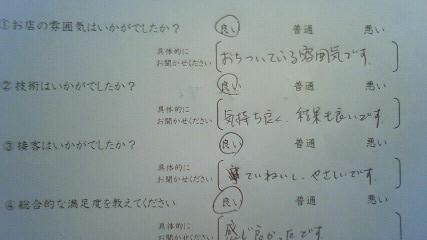 ①お店の雰囲気はいかがでしたか? 良い 普通 悪い
具体的に
お聞かせください
おちついている雰囲気です
②技術はいかがでしたか? 良い 普通 悪い
具体的に
お聞かせください
気持ち良く、結果も良いです
③接客はいかがでしたか? 良い 普通 悪い
具体的に
お聞かせください
ていねいし、やさしいです
④総合的な満足度を教えてください 良い 普通 悪い
具体的に
感じ良かったです